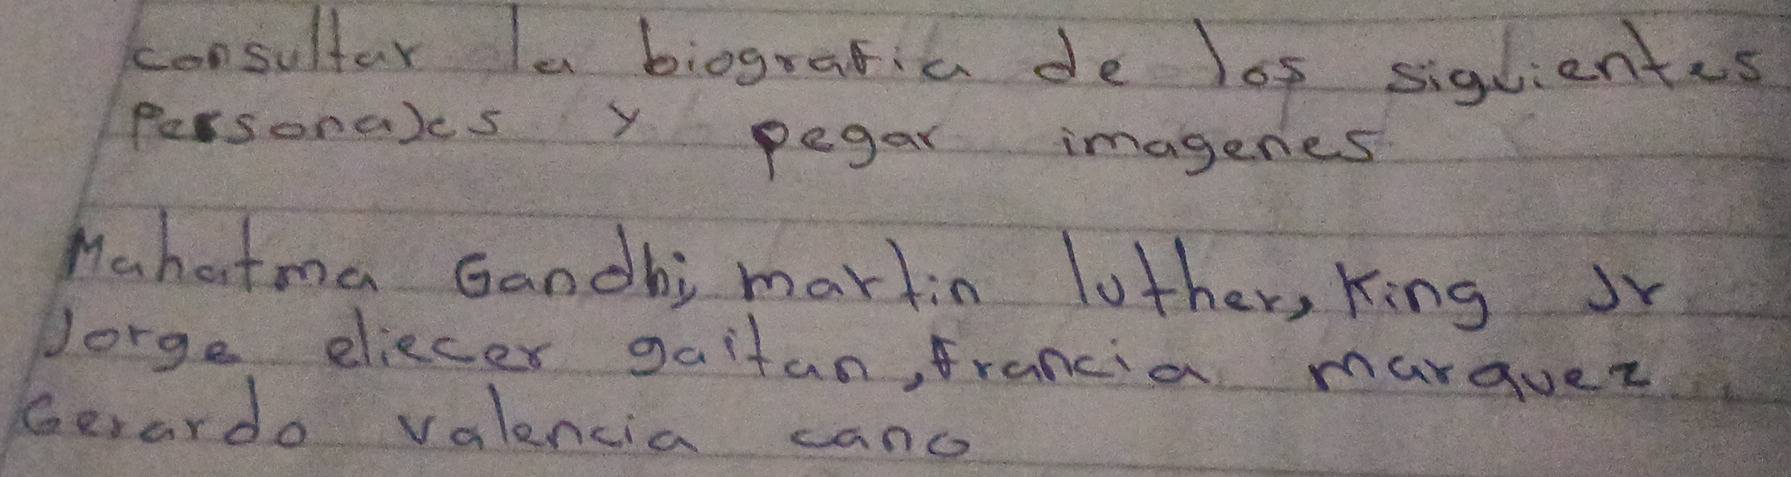 consultar la biografia de los siguientes
Personajes y pegar imagenes
Mahatma Gandhi, martin luther, King Jr
Jorge eliecer gaitan, francia marquez
Gerardo valencia cano